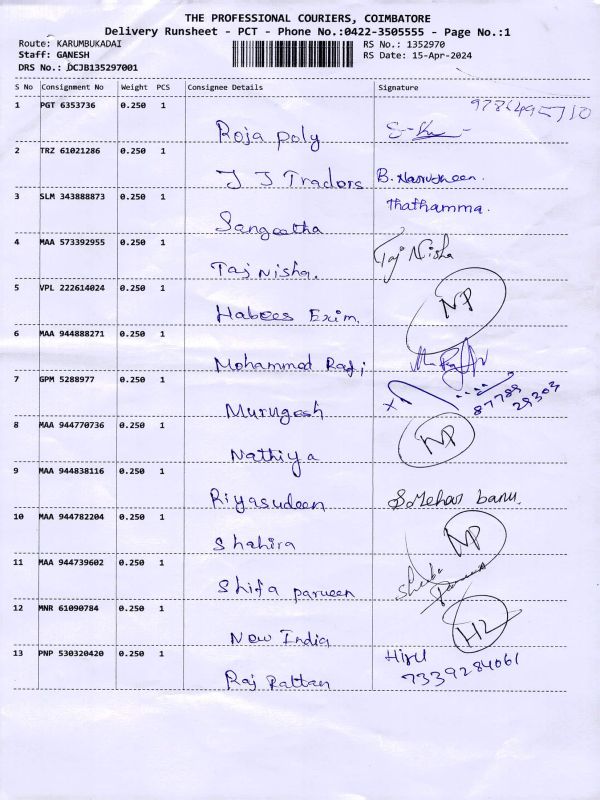 THE PROFESSIONAL COURIERS, COIMBATORE
Delivery Runsheet - PCT - Phone No.:0422-3505555 - Page No.:1
Route: KARUMBUKADAI RS No.: 1352970
Staff: GANESH RS Date: 15-Apr-2024
DRS No.: DCJB135297001
S No Consignment No Weight PCS Consignee Details Signature
1 PGT 6353736 0.250 1
Roja poly
2 TRZ 61021286 0.250 1
J J Tradors B. Nasrusheen.
3 SLM 343888873 0.250 1 Thathamma.
Sangeetha
4 MAA 573392955 0.250 1
Taj Nisha. Taj Nisha
5 VPL 222614024 0.250 1
Habees Exim. NP
6 MAA 944888271 0.250 1
Mohammod Rafi
7 GPM 5288977 0.250 1 87789
Murugesh 29303
8 MAA 944770736 0.250 1
Nathiya NP
9 MAA 944838116 0.250 1
Riyasudeen S. Mehar banu.
10 MAA 944782204 0.250 1
Shahira NP
11 MAA 944739602 0.250 1
Shifa parveen
12 MNR 61090784 0.250 1
New India
13 PNP 530320420 0.250 1 7339284061
Raj Rattan